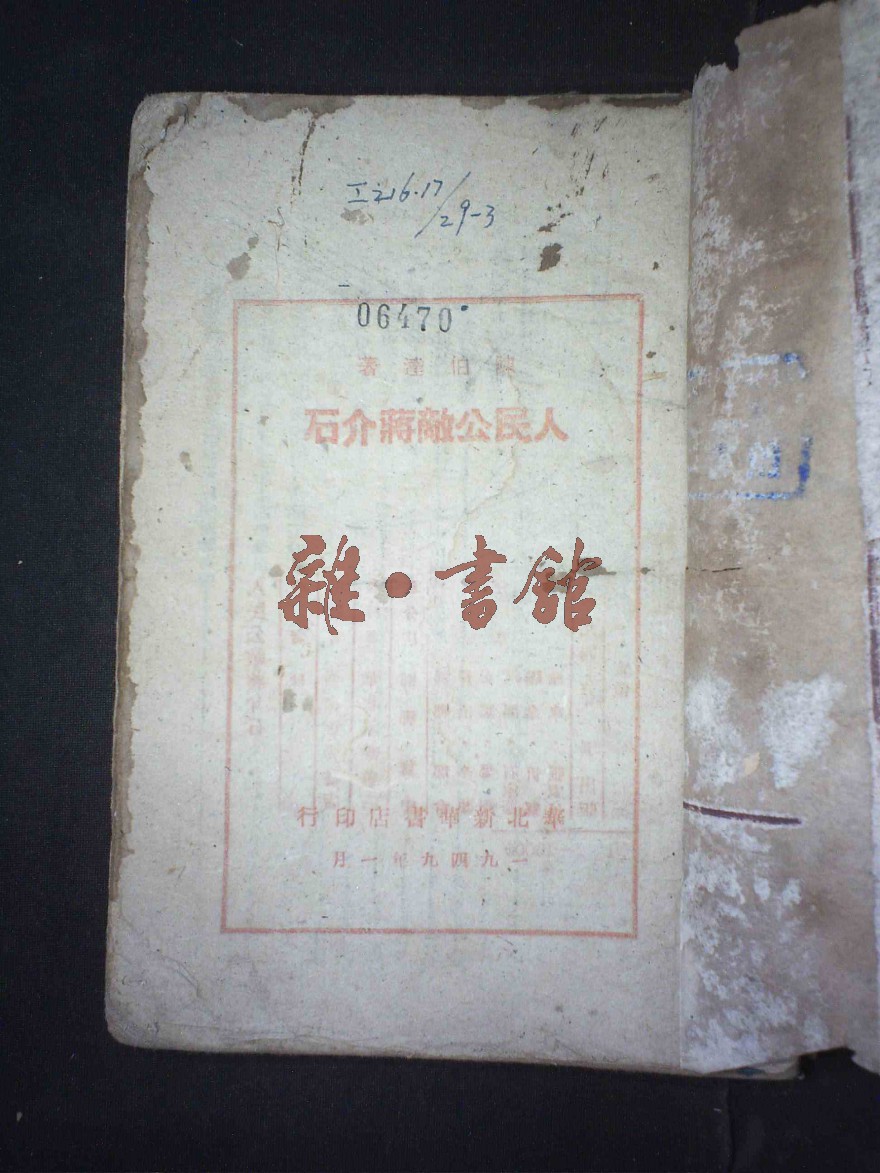 I216.17/29-3
06470
陳伯達著
人民公敵蔣介石
雜·書館
華北新華書店印行
一九四九年一月